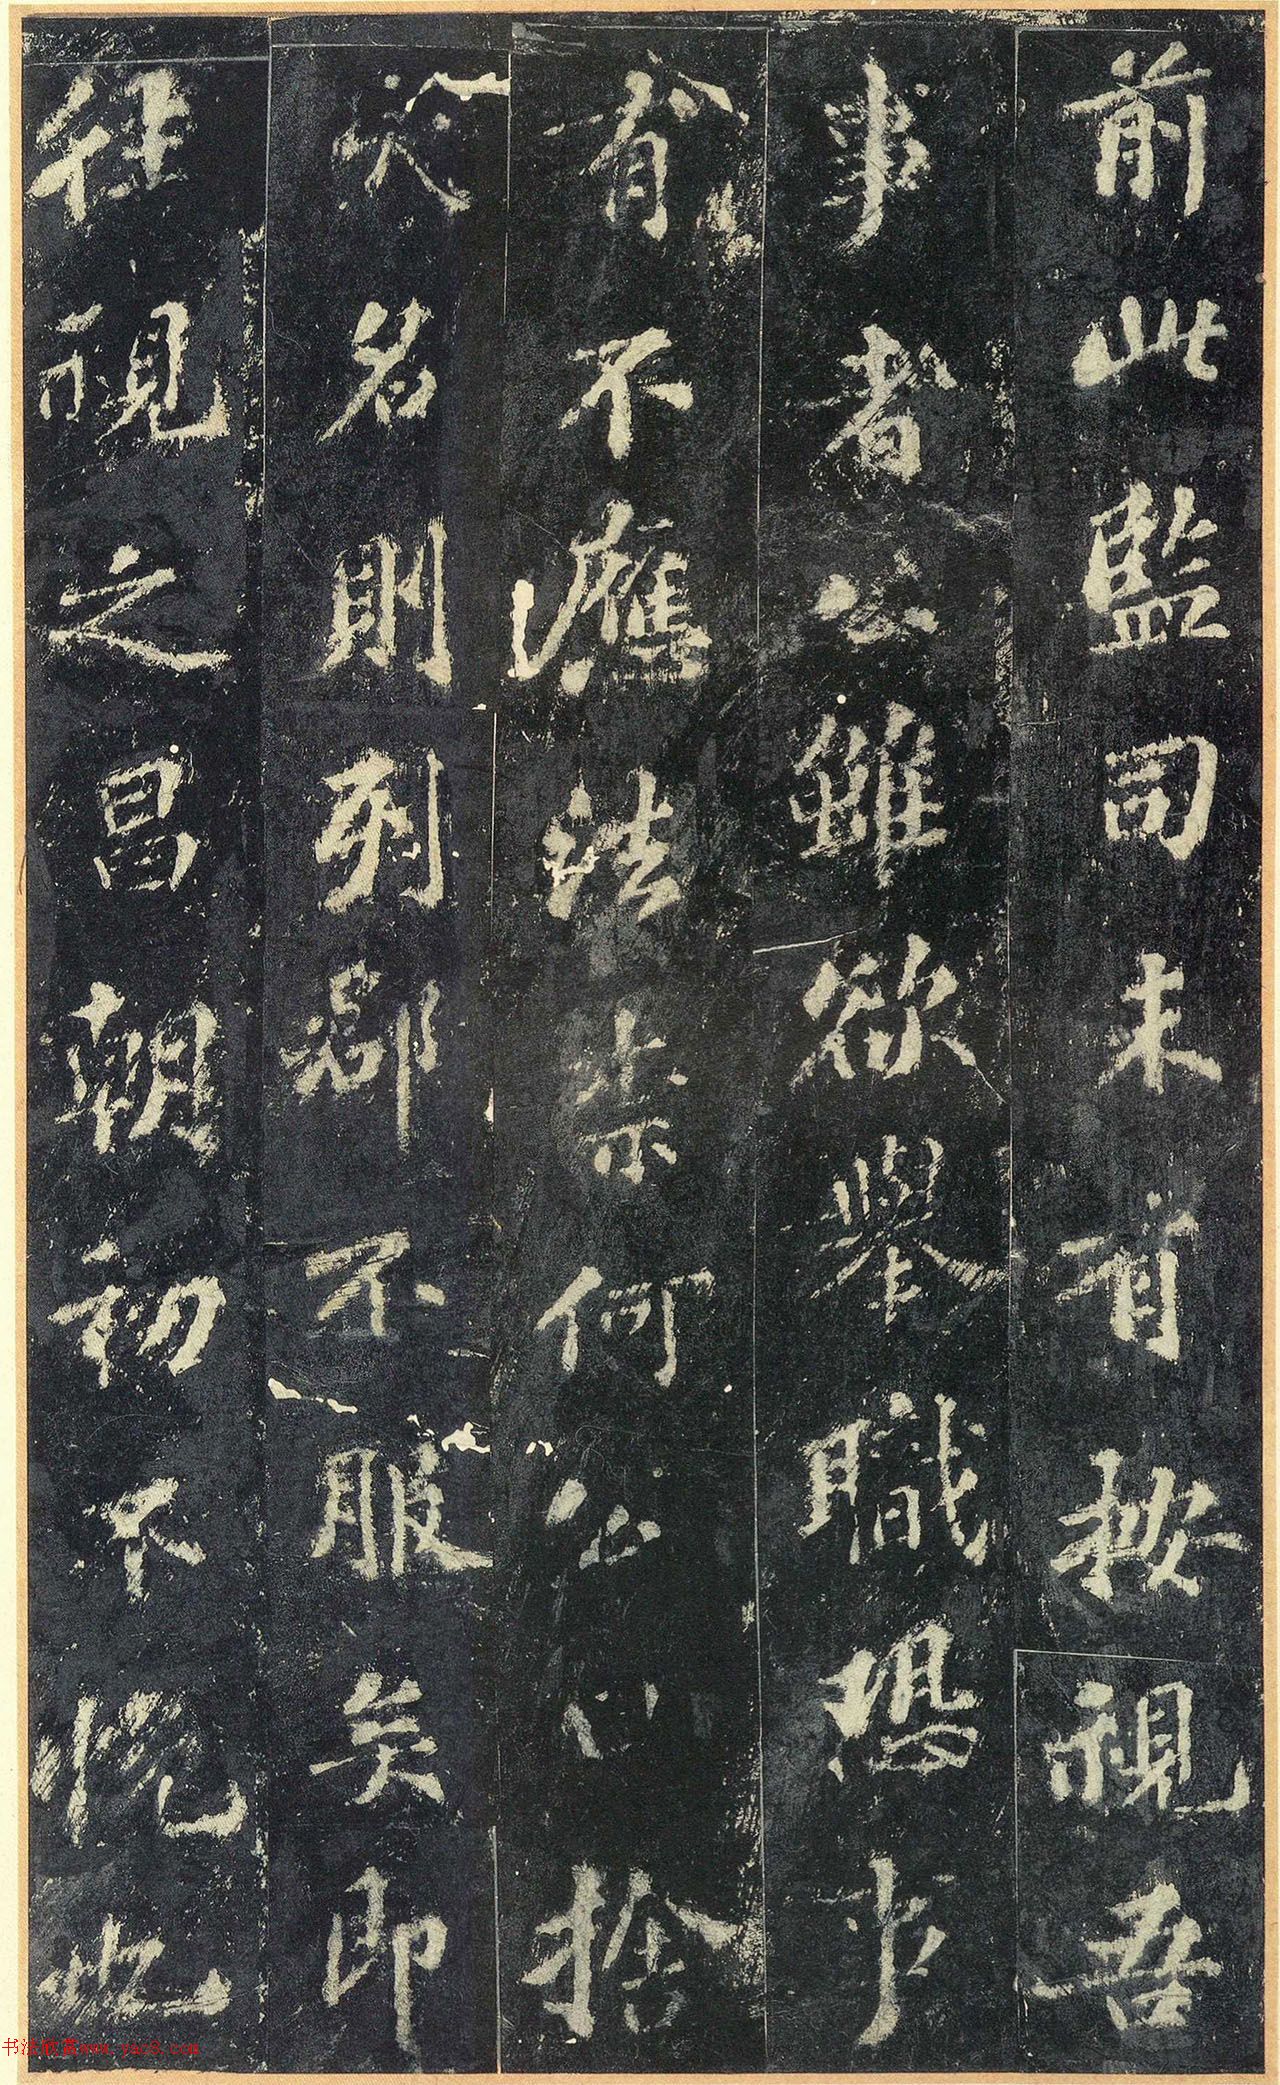 前此監司未有按視吾
事者公雖欲舉職恐事
有不應法柰何公曰捨
大名則列郡不服矣即
往視之昌朝初不悅也
书法欣赏www.yac8.com